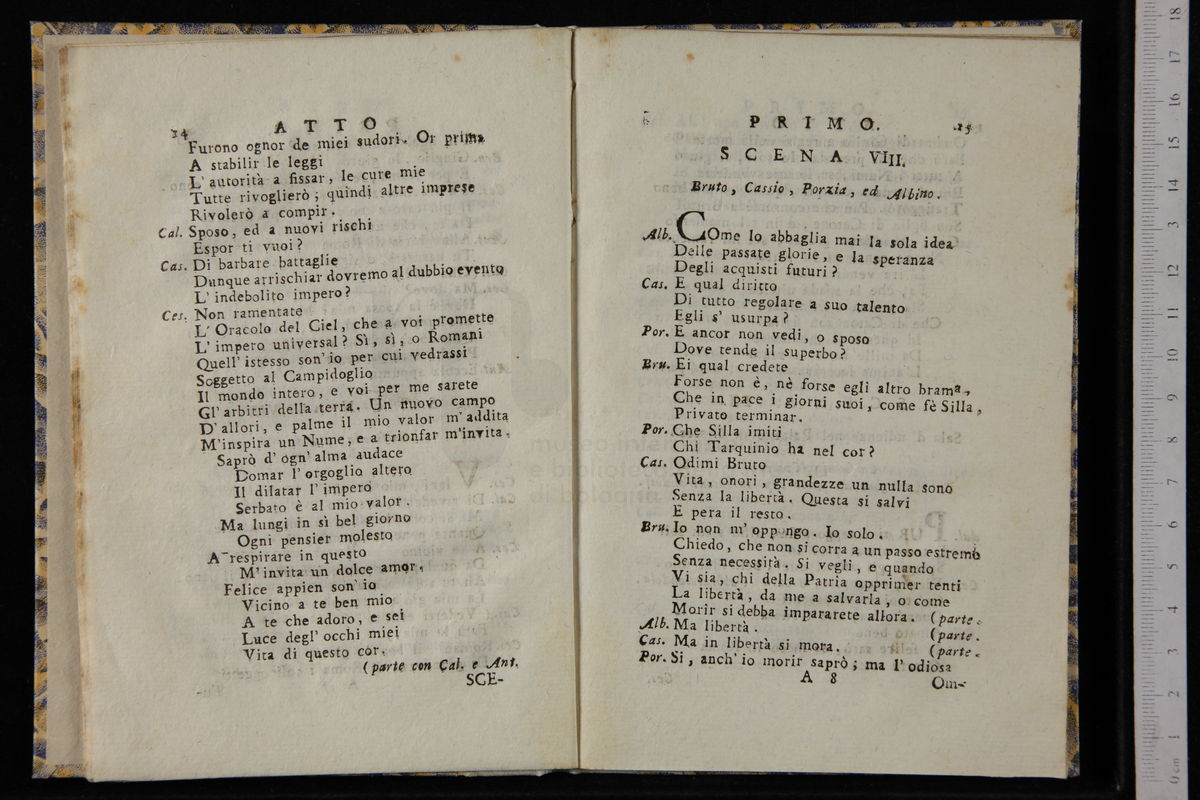 24
ATTO
Furono ognor de miei sudori. Or prima
A stabilir le leggi
L' autorità a fissar, le cure mie
Tutte rivoglierò; quindi altre imprese
Rivolerò a compir.
Cal. Sposo, ed a nuovi rischi
Espor ti vuoi?
Cas. Di barbare battaglie
Dunque arrischiar dovremo al dubbio evento
L' indebolito impero?
Ces. Non ramentate
L' Oracolo del Ciel, che a voi promette
L' impero universal? Sì, sì, o Romani
Quell' istesso son' io per cui vedrassi
Soggetto al Campidoglio
Il mondo intero, e voi per me sarete
Gl' arbitri della terra. Un nuovo campo
D' allori, e palme il mio valor m' addita
M'inspira un Nume, e a trionfar m'invita.
Saprò d' ogn' alma audace
Domar l' orgoglio altero
Il dilatar l' impero
Serbato è al mio valor.
Ma lungi in sì bel giorno
Ogni pensier molesto
A respirare in questo
M' invita un dolce amor,
Felice appien son' io
Vicino a te ben mio
A te che adoro, e sei
Luce degl' occhi miei
Vita di questo cor.
(parte con Cal. e Ant.
SCE-
PRIMO.
25
SCENA VIII.
Bruto, Cassio, Porzia, ed Albino.
Alb. COme lo abbaglia mai la sola idea
Delle passate glorie, e la speranza
Degli acquisti futuri?
Cas. E qual diritto
Di tutto regolare a suo talento
Egli s' usurpa?
Por. E ancor non vedi, o sposo
Dove tende il superbo?
Bru. Ei qual credete
Forse non è, nè forse egli altro brama,
Che in pace i giorni suoi, come fè Silla,
Privato terminar.
Por. Che Silla imiti
Chi Tarquinio ha nel cor?
Cas. Odimi Bruto
Vita, onori, grandezze un nulla sono
Senza la libertà. Questa si salvi
E pera il resto.
Bru. Io non m' oppongo. Io solo.
Chiedo, che non si corra a un passo estremo
Senza necessità. Si vegli, e quando
Vi sia, chi della Patria opprimer tenti
La libertà, da me a salvarla, o come
Morir si debba impararete allora. (parte.
Alb. Ma libertà. (parte.
Cas. Ma in libertà si mora. (parte.
Por. Si, anch' io morir saprò; ma l' odiosa
A 8
Om-
museo inter
e biblioteca
di bologna
0 cm 1 2 3 4 5 6 7 8 9 10 11 12 13 14 15 16 17 18